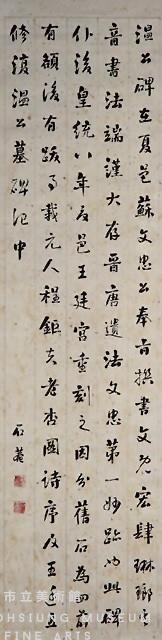 溫公碑在夏邑蘇文忠公奉旨撰書文尤宏肆琳瑯之
音書法端謹大存晉唐遺法文忠第一妙跡也此碑
仆後皇統八年夏邑王廷宮重刻之因分舊石為四前
有額後有跋事載元人程鉅夫老杏圖詩序及王
修復溫公墓碑記中
石菴
市立美術館
OHSIUNG MUSEUM
FINE ARTS